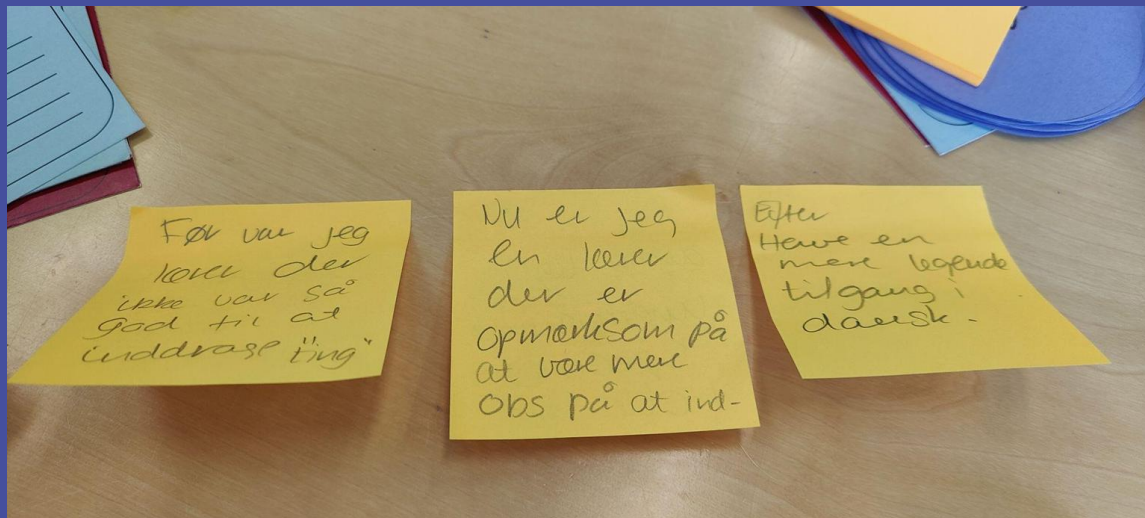 Før var jeg
lærer der
ikke var så
god til at
inddrage "ting"
Nu er jeg
en lærer
der er
opmærksom på
at være mere
obs på at ind-
Efter
mere legende
tilgang i
dansk.